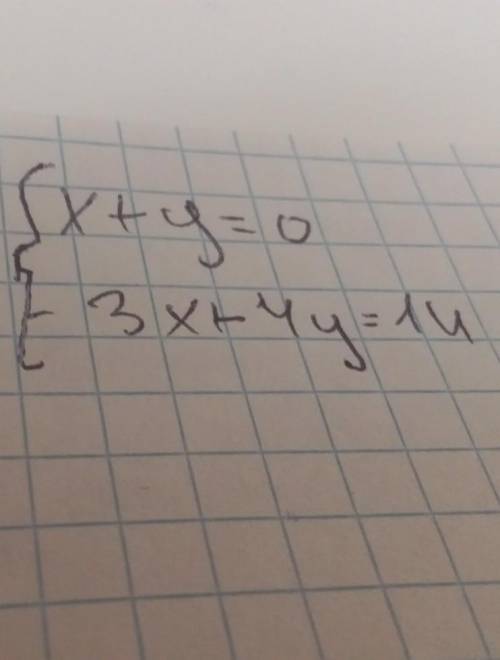 { x+y=0
- 3x+4y=14